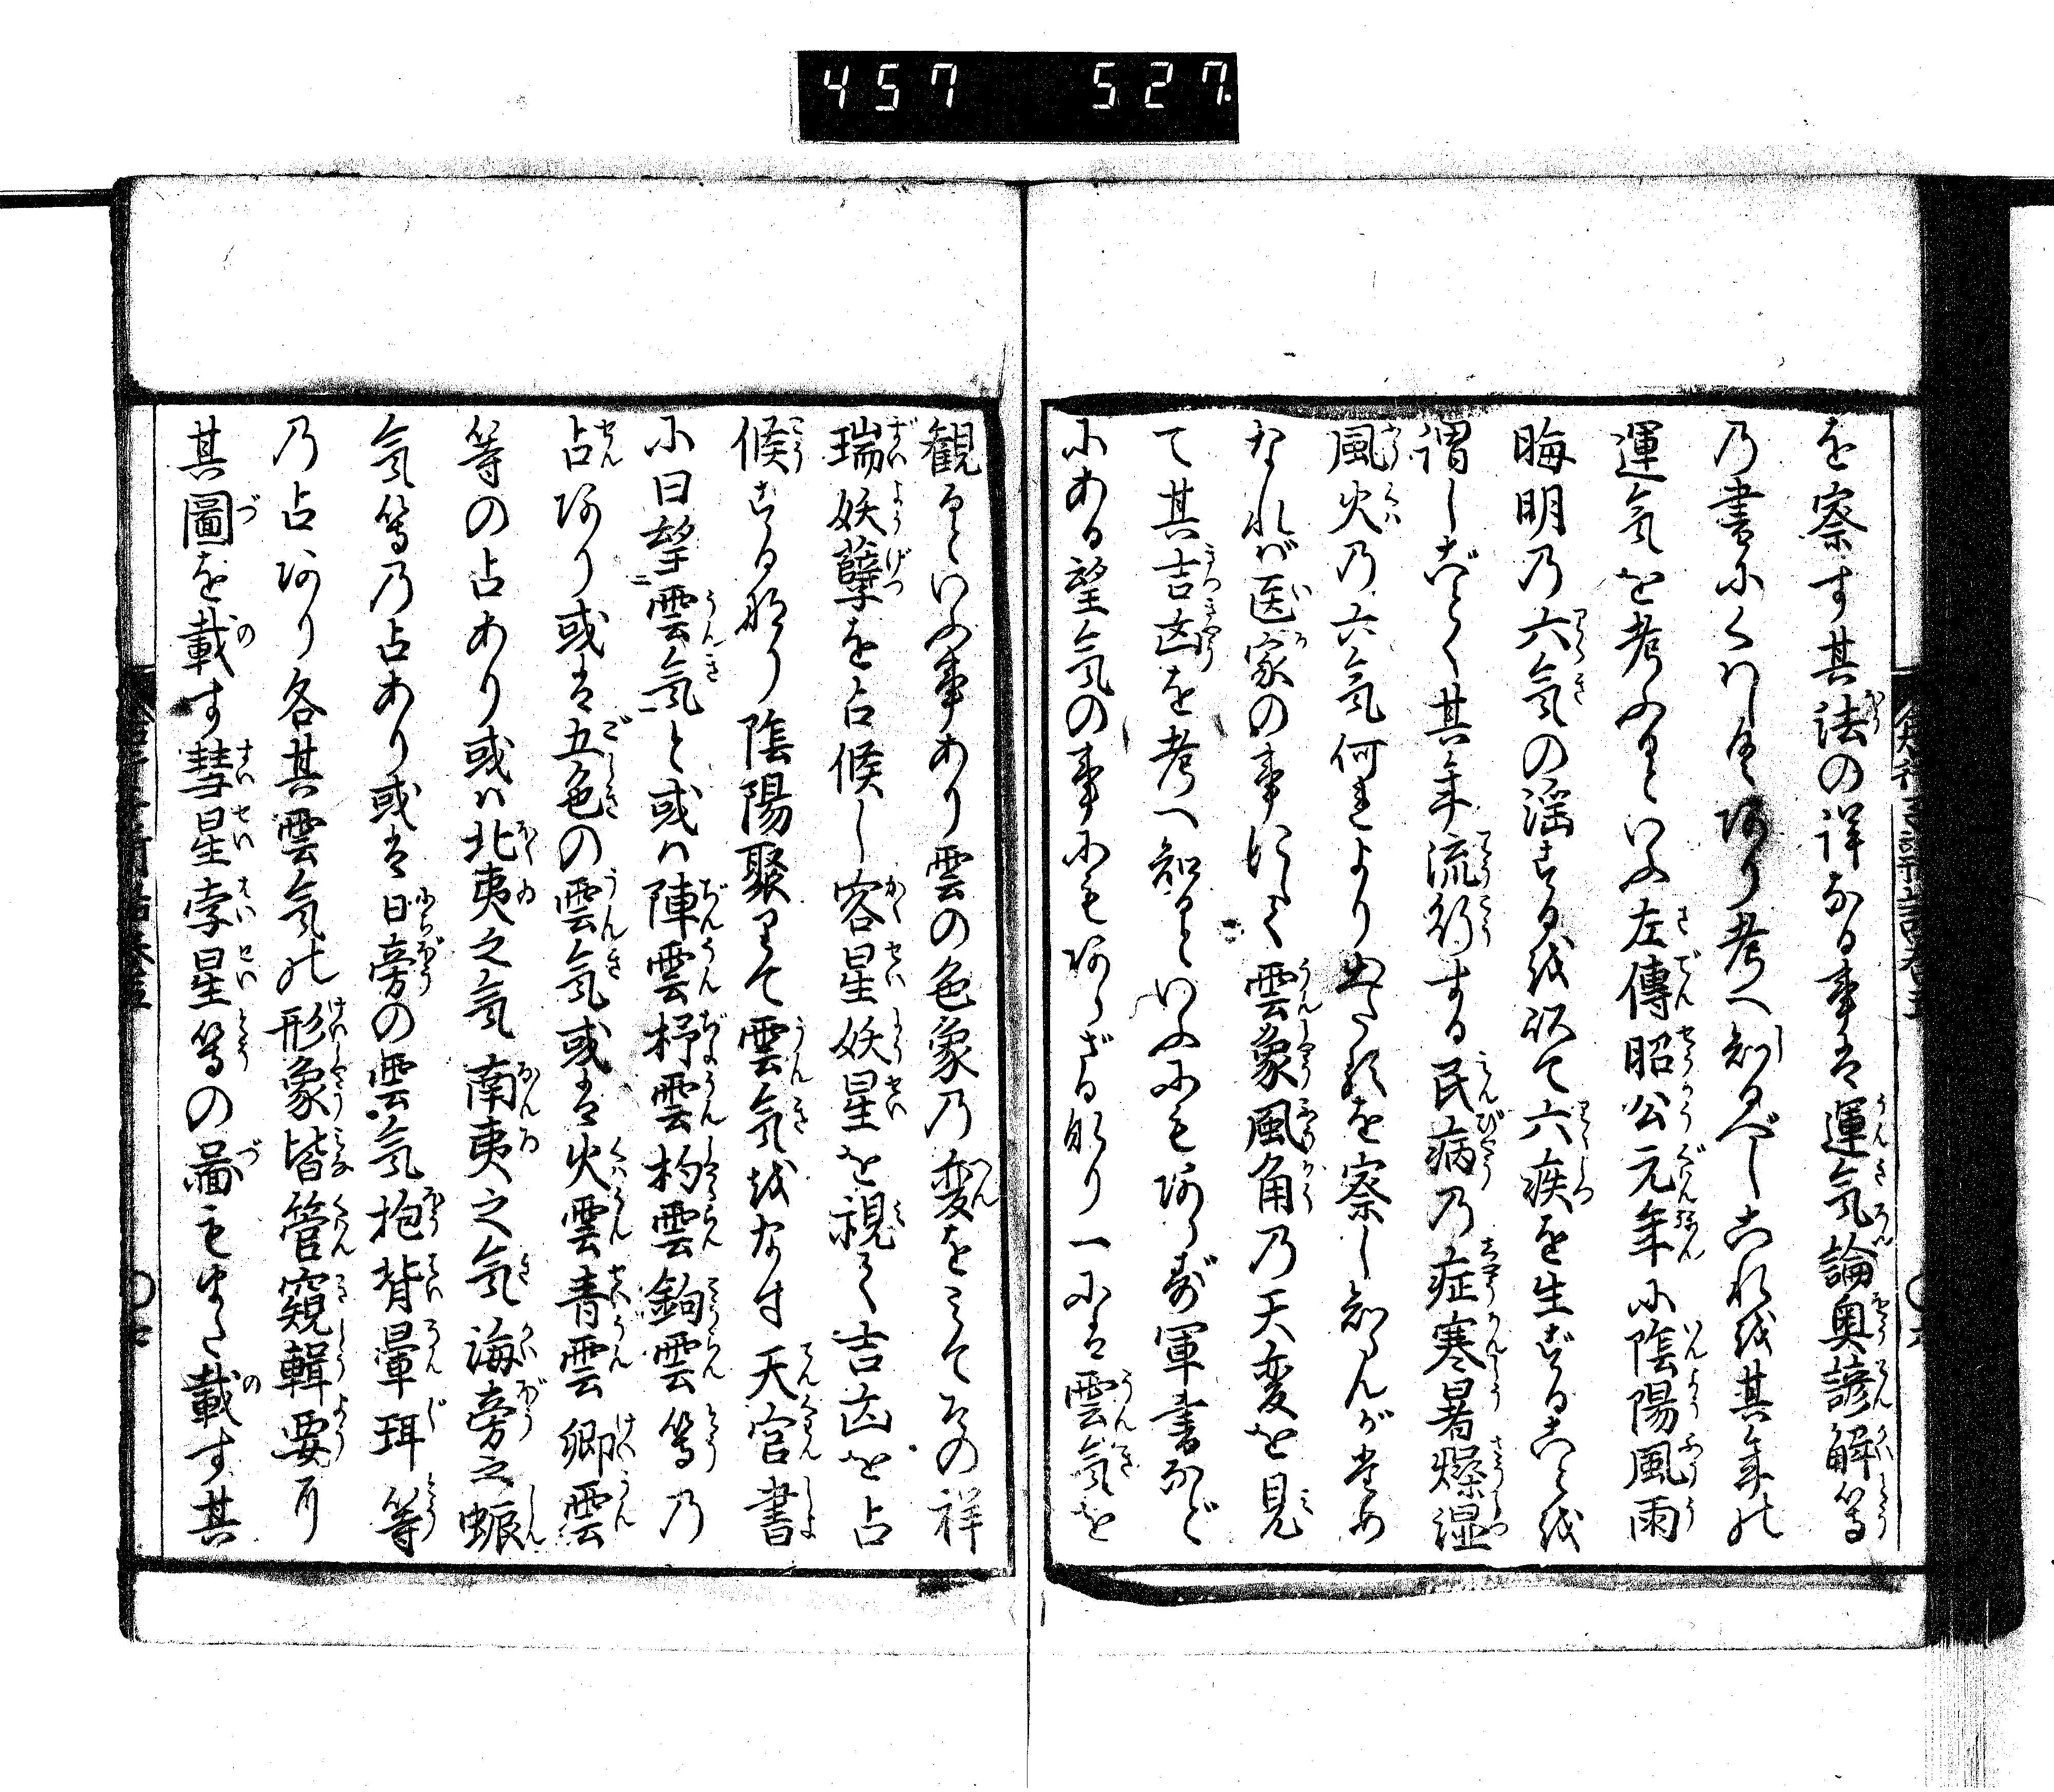 457 527.
を察す其法の詳なる事は運気論奥諺解等
の書にくはしくあり考へ知るべしこれを其年の
運気を考ふるといふ左傳昭公元年に陰陽風雨
晦明の六気の淫するを以て六疾を生ずることを
謂しごとく其年流行する民病の症寒暑燥湿
風火の六気何れより出たるを察し知るんがため
なれば医家の事にて雲象風角の天変を見
て其吉凶を考へ知るといふにもあらず軍書など
にある望気の事にもあらざるなり一には雲気を
観るといふ事あり雲の色象の変をみてその祥
瑞妖孽を占候し容星妖星を視て吉凶を占
候するなり陰陽聚りて雲気をなす天官書
に曰望雲気と或は陣雲杼雲杓雲鉤雲等の
占あり或は五色の雲気或は火雲青雲卿雲
等の占あり或は北夷之気南夷之気海旁之蜄
気等の占あり或は日旁の雲気抱背暈珥等
の占あり各其雲気の形象皆管窺輯要に
其圖を載す彗星孛星等の圖もまた載す其